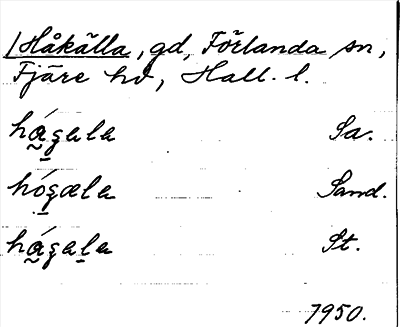 Håkälla, gd, Förlanda sn,
Fjäre hd, Hall. l.
há̰gala Sa.
hó̱gæla Sand.
há̰gaḻa St.
1950.